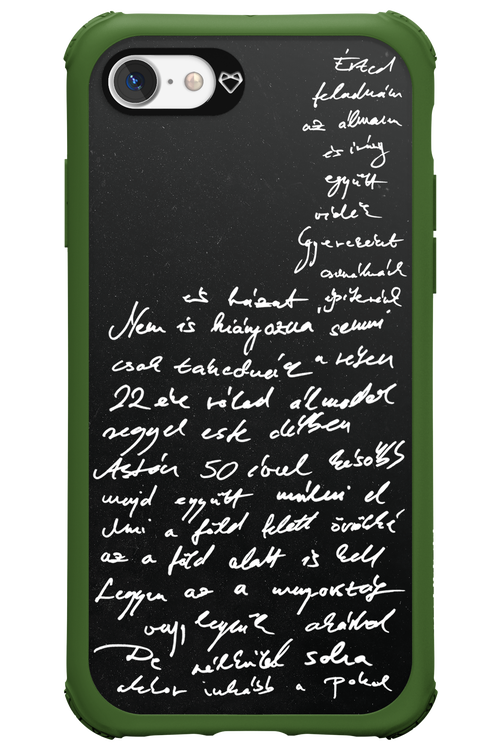 Érted
feladnám
az álmom
és így
együtt
vidék
Gyereket
csinálnánk
és házat építenénk
Nem is hiányozna semmi
csak takednác a réten
22 éve rólad álmodok
reggel este délben
Aztán 50 évvel később
majd együtt múlni el
Ami a föld felett örökké
az a föld alatt is kell
Legyen az a mennyország
vagy legyünk akárhol
De nélküled soha
akkor inkább a Pokol